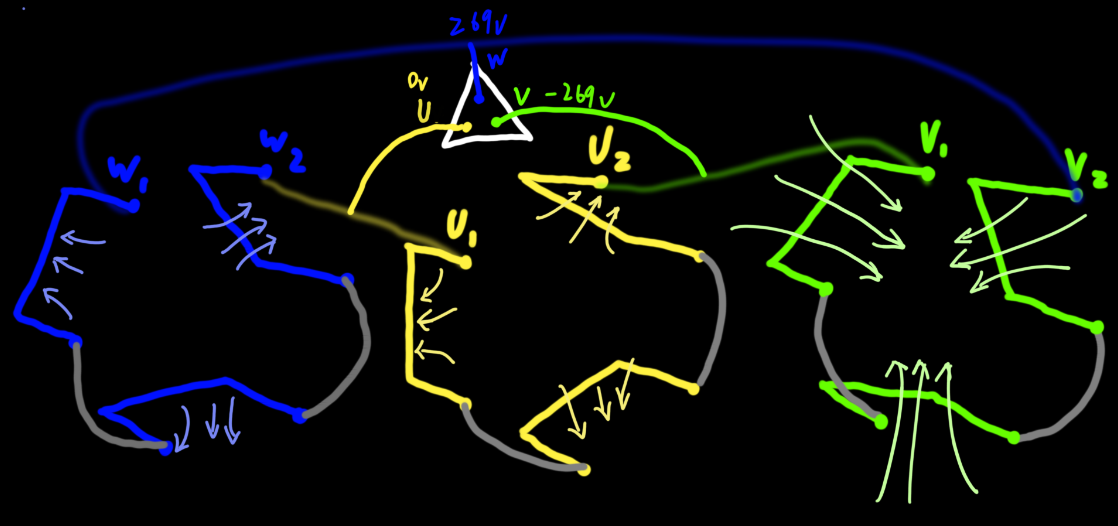 269V
W
0V
U
V -269V
W1
W2
U1
U2
V1
V2